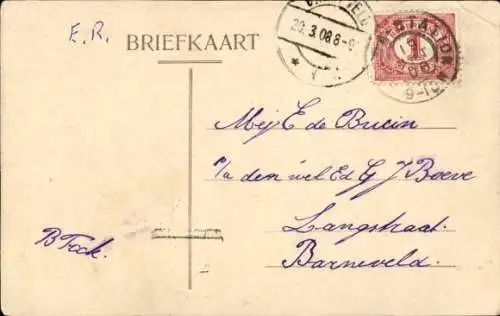 E.R.
BRIEFKAART
20.3.08 8-9
1
9-10
Mej E de Bucin
p/a den wel Ed G J Boeve
Langstraat
Barneveld.
B Fock.